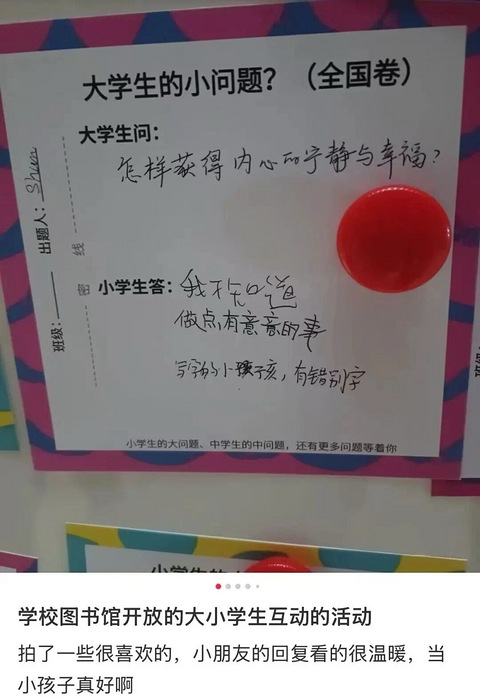 大学生的小问题？（全国卷）
大学生问：
怎样获得内心的宁静与幸福？
出题人：Shun
线
密
班级：
小学生答：我不知道
做点有意意的事
写字的小孩子孩，有错别字
小学生的大问题、中学生的中问题，还有更多问题等着你
学校图书馆开放的大小学生互动的活动
拍了一些很喜欢的，小朋友的回复看的很温暖，当
小孩子真好啊